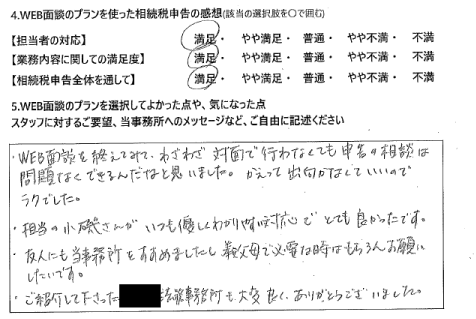 4.WEB面談のプランを使った相続税申告の感想(該当の選択肢を〇で囲む)
【担当者の対応】 満足・ やや満足・ 普通・ やや不満・ 不満
【業務内容に関しての満足度】 満足・ やや満足・ 普通・ やや不満・ 不満
【相続税申告全体を通して】 満足・ やや満足・ 普通・ やや不満・ 不満
5.WEB面談のプランを選択してよかった点や、気になった点
スタッフに対するご要望、当事務所へのメッセージなど、ご自由に記述ください
・WEB面談を終えてみて、わざわざ対面で行わなくても申告の相談は
問題なくできるんだなと思いました。かえって出向かなくていいので
ラクでした。
・担当の小磯さんがいつも優しくわかりやすい対応でとても良かったです。
・友人にも当事務所をすすめましたし義父母で必要な時はもちろんお願い
したいです。
・ご紹介して下さった 事務所も大変良く、ありがとうございました。